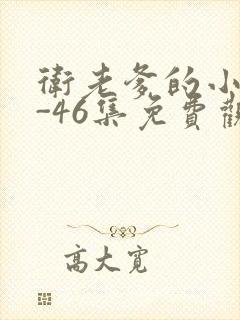 衛老爹的小
-46集免費觀
高大寬